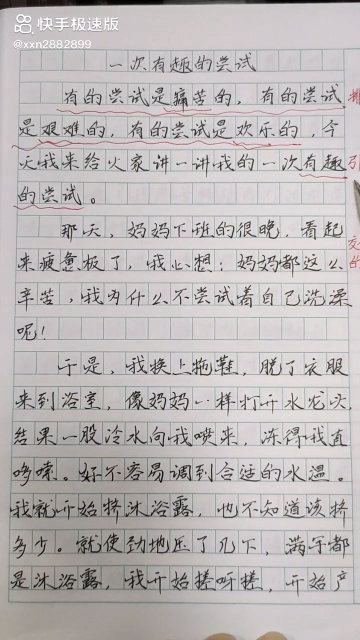 快手极速版
@xxn2882899
一次有趣的尝试
有的尝试是痛苦的，有的尝试
是艰难的，有的尝试是欢乐的，今
天我来给大家讲一讲我的一次有趣
引
的尝试。
那天，妈妈下班的很晚，看起
来疲惫极了，我心想：妈妈都这么
辛苦，我为什么不尝试着自己洗澡
呢！
于是，我换上拖鞋，脱了衣服
来到浴室，像妈妈一样打开水龙头
结果一股冷水向我喷来，冻得我直
哆嗦。好不容易调到合适的水温。
我就开始挤沐浴露，也不知道该挤
多少。就使劲地压了几下，满手都
是沐浴露，我开始搓呀搓，开始产